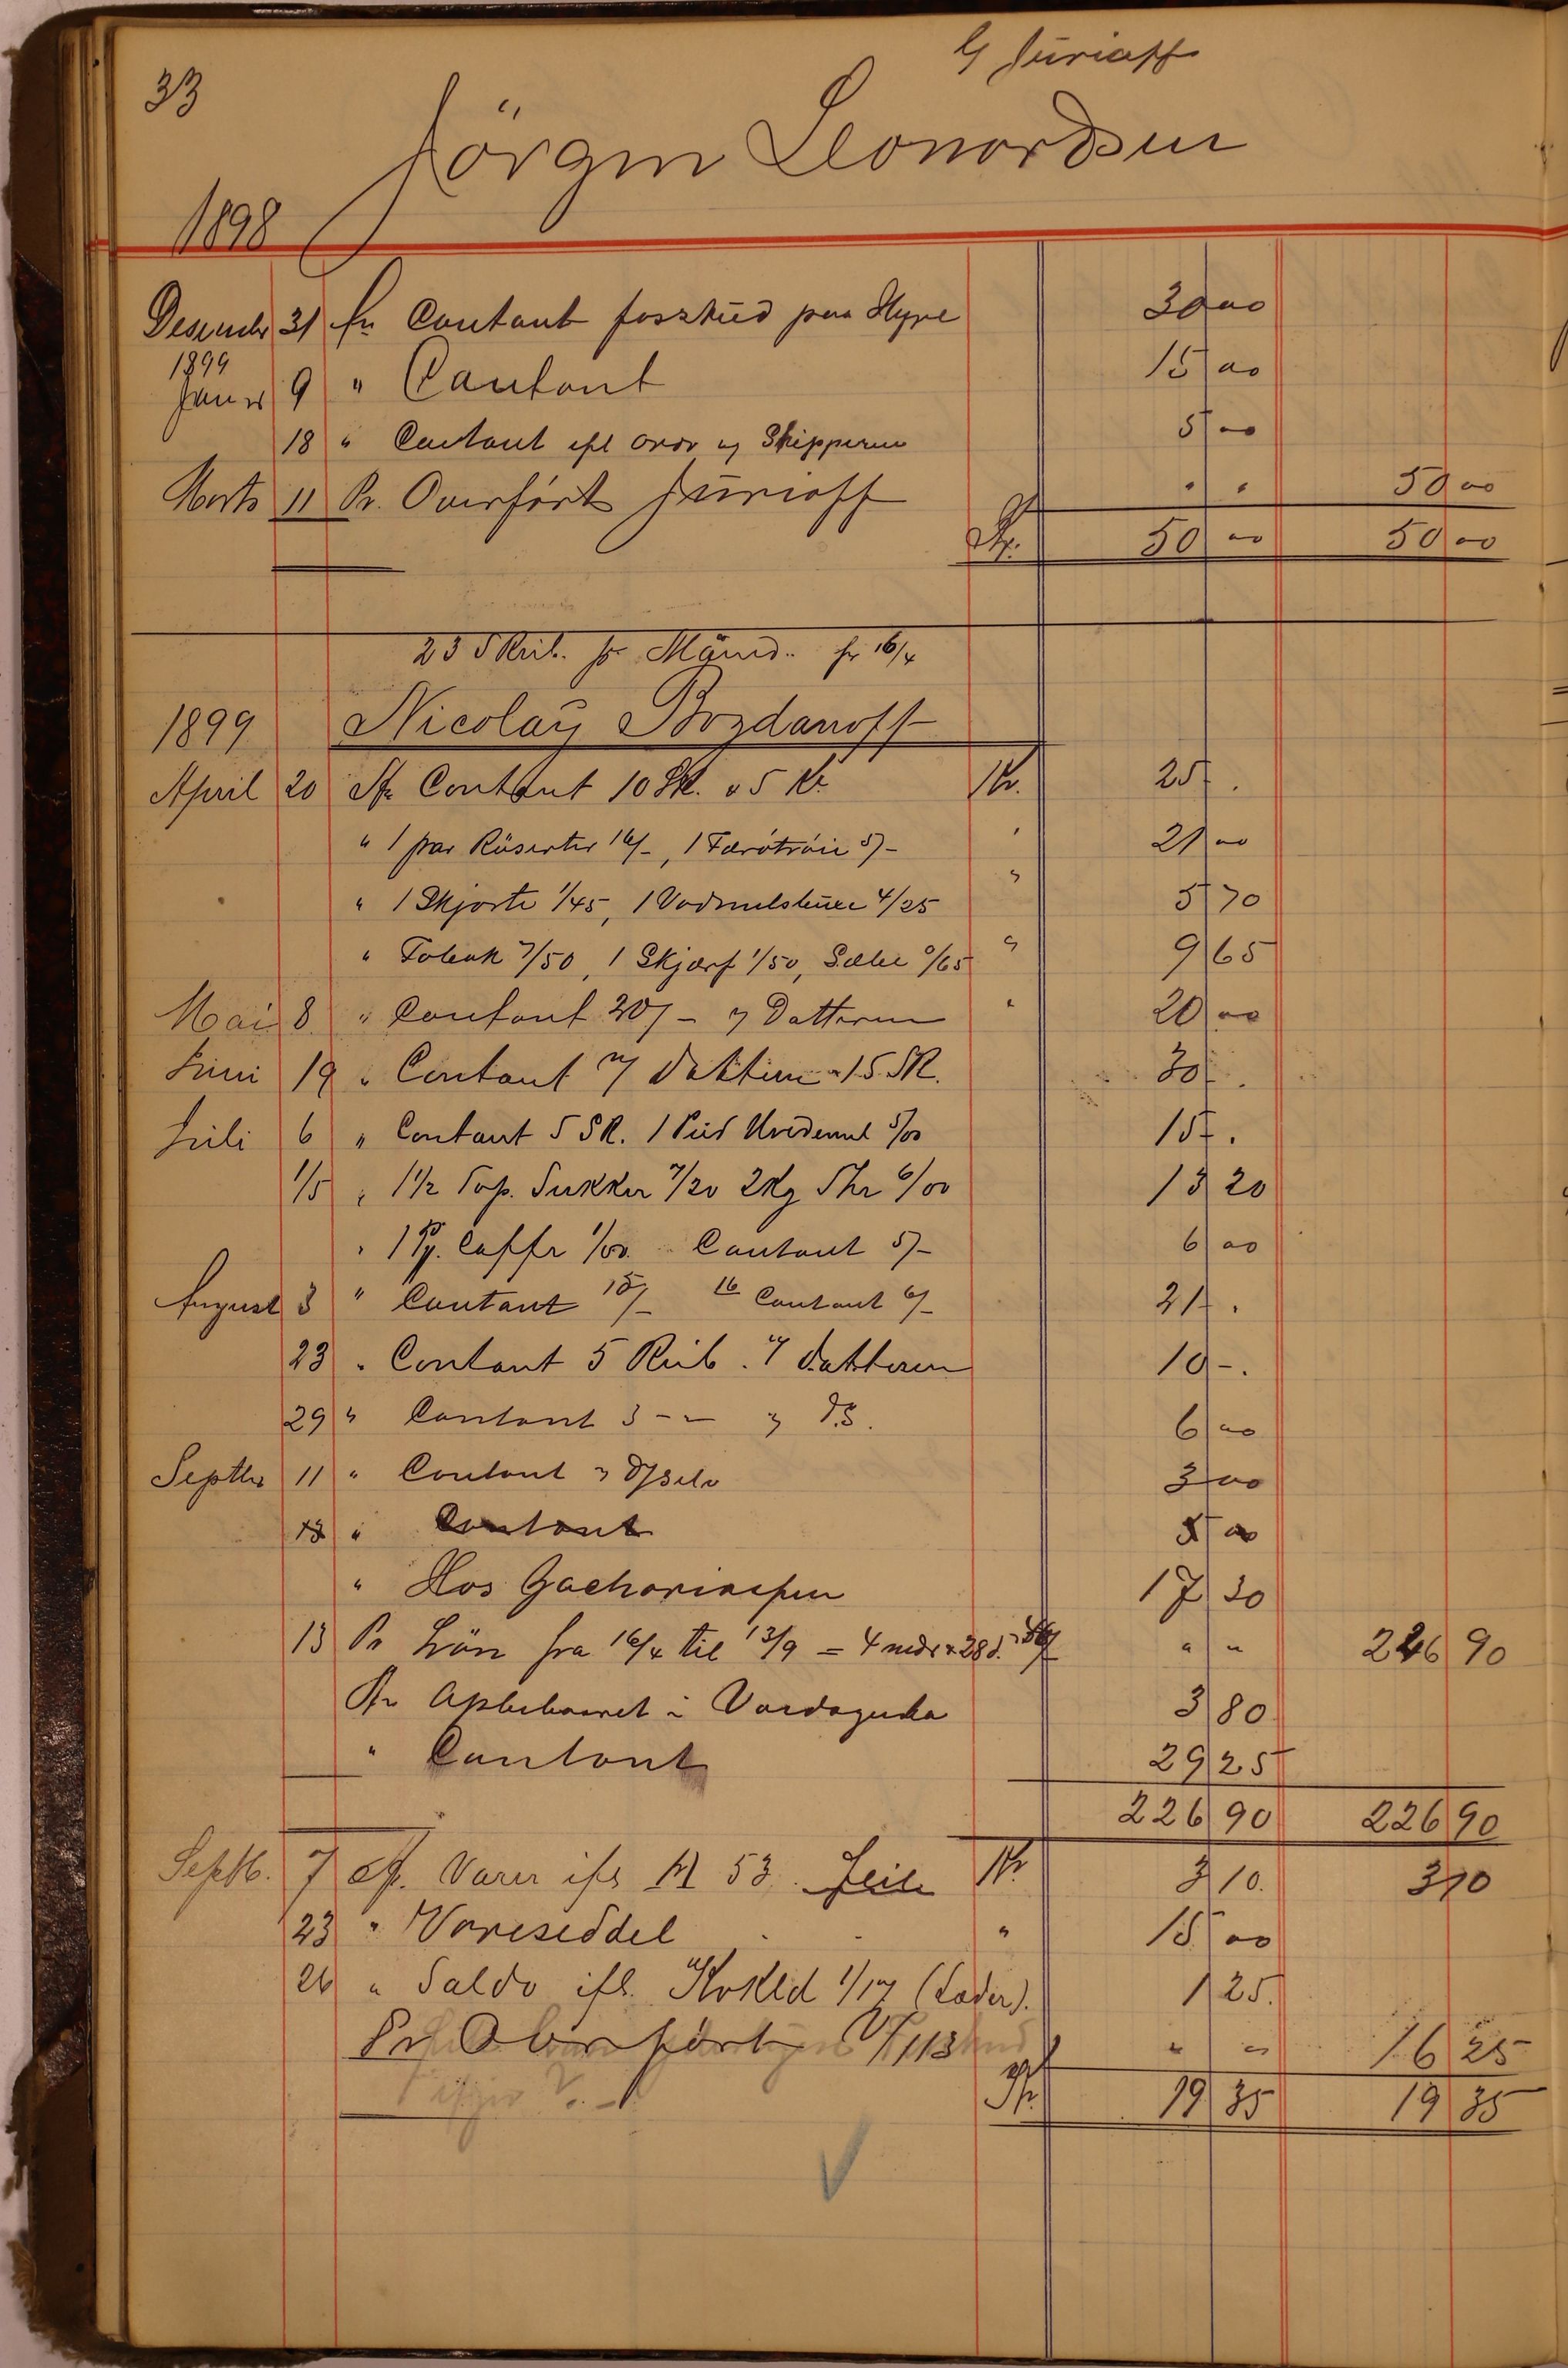 33
Jüriaff
Jörgen Leonardsen
1898
Desember 31 An Contant forskud paa Hyre 30 00
1899
Januar 9 " Contant 15 00
18 " Contant efl Ordr Skipperen 5 00
Marts 11 Pr. Overført Jüriaff " " 50 00
Kr. 50 00 50 00
23 S Rub. pr Måned. fr 16/4
1899 Nicolay Bogdanoff
April 20 An Contant 10 SR. o 5 Kr Kr. 25 .
" 1 par Rüserter 16/-, 1 Færötröie 5/- " 21 00
" 1 Skjorte 1/45, 1 Vadmelsbuxe 4/25 " 5 70
" Tobak 7/50, 1 Skjærf 1/50, Sæbe 0/65 " 9 65
Mai 8 " Contant 20/- Datteren " 20 00
Juni 19 " Contant Datteren 15 SR. 30 .
Juli 6 " Contant 5 SR. 1 Pud Hvedemel 5/00 15 .
1/5 " 1 1/2 Top. Sukker 7/20 2 Kg The 6/00 13 20
" 1 Caffe 1/00. Contant 5/- 6 00
August 3 " Contant 15/- 16 Contant 6/- 21 .
23 " Contant 5 Rub. datteren 10 - .
29 " Contant 3 - - DS. 6 00
Septbr 11 " Contant selv 3 00
13 " Contant 5 00
" Hos Gachariassen 17 30
13 Pr Lön fra 16/4 til 13/9 = 4 mdr & 28 d. " " 226 90
An i Vaidaguba 3 80
" Contant 29 25
226 90 226 90
Septb. 7 An Varer ifl 53. Feil Kr. 3 10. 3 10
23 " Vareseddel " 15 00
26 " Saldo ifl. Kokld 1/17 (Lader). 1 25.
Pr Overført V/113 " " 16 25
Kr. 19 35 19 35